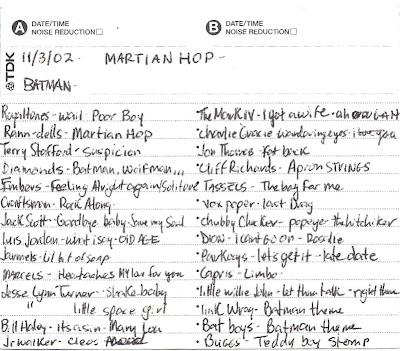 A DATE/TIME
NOISE REDUCTION
B DATE/TIME
NOISE REDUCTION
TDK
11/3/02 - MARTIAN HOP
BATMAN -
Royaltones - wail - Poor Boy
Rann-dells - Martian HOP
Terry Stafford - suspicion
Diamonds - Batman, Wolfman,,,
Embers - Feeling Alright again/Solitude
Craftsmen - Rock Along
Jack Scott - Goodbye baby - Save my Soul
Luis Jordan - wht is y - OlD AGE
Jarmels - lil bit of soap
MARCELS - Heartaches My love for you
Jesse Lynn Turner - shake baby
" little space girl
Bill Haley - its a sin - Mary Lou
Jr walker - Cleos
• The MarkIV - I got a wife - ah
• charlie Gracie wandering eyes - i love you
• Jon Thomas - fat back
• Cliff Richards - Apron STRINGS
• TASSELS - The boy for me
• Vox poper - last Drag
• Chubby Checker - popeye - the hitchiker
• DION - I cant go on - Rosalie
• ParKays - lets get it - late date
• Capris - Limbo
• little willie John - let them talk - right there
• link Wray - Batman theme
• Bat boys - Batman theme
• BUGGS - Teddy boy stomp